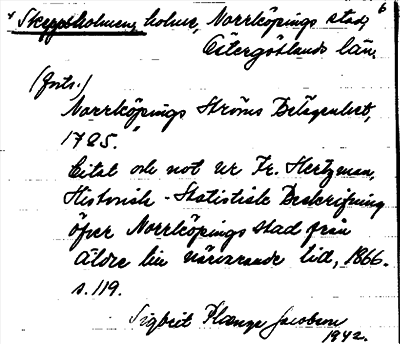 Skeppsholmen, holme, Norrköpings stad, 6
Östergötlands län.
(forts.)
Norrköpings Ströms Belägenhet,
1785."
Citat och not ur Fr. Hertzman,
Historisk-Statistisk Beskrifning
öfver Norrköpings stad från
äldre till närvarande tid, 1866.
s. 119.
Sigbrit Plænge Jacobson
1942.